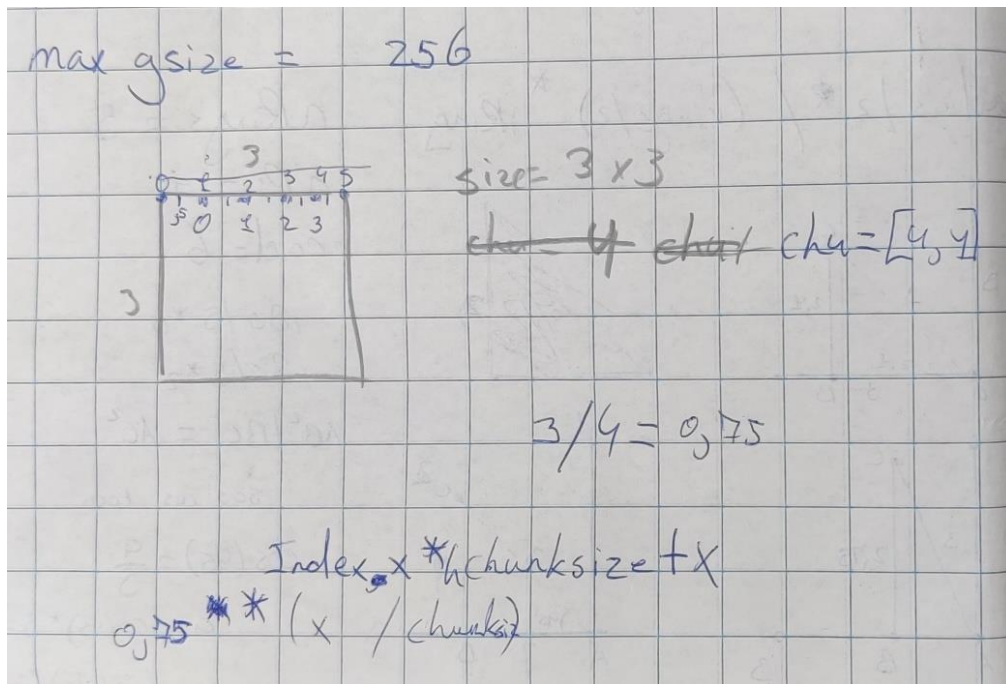 max gsize = 256
3
0 1 2 3 4 5
size= 3 x 3
0 1 2 3
chu = 4 chu chu=[4,4]
3
3/4 = 0,75
Index.x *chunksize + x
0,75 * * (x / chunksiz)